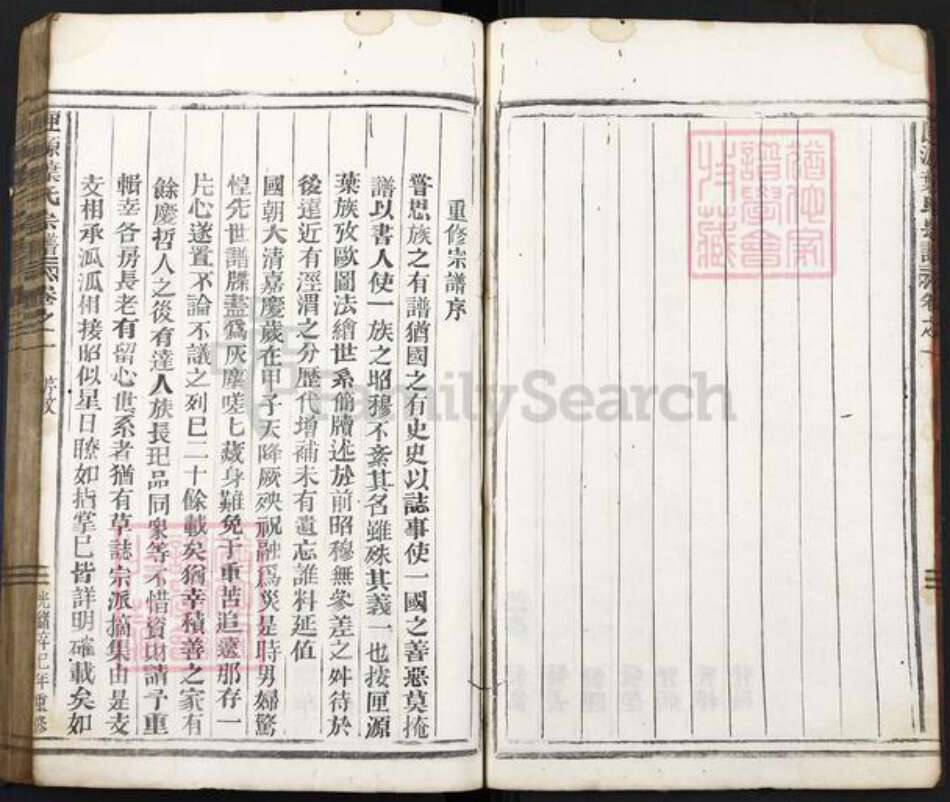 重修宗譜序
嘗思族之有譜猶國之有史史以誌事使一國之善惡莫掩
譜以書人使一族之昭穆不紊其名雖殊其義一也按匣源
葉族攷歐圖法繪世系簡牘述於前昭穆無參差之舛待於
後遠近有涇渭之分歷代增補未有遺忘誰料延值
國朝大清嘉慶歲在甲子天降厥殃祝融爲災是時男婦驚
惶先世譜牒盡爲灰塵嗟乜藏身難免于重苦追遠那存一
片心遂置不論不議之列巳二十餘載矣猶幸積善之家有
餘慶哲人之後有達人族長玘品同衆等不惜資財請予重
輯幸各房長老有留心世系者猶有草誌宗派摘集由是支
支相承瓜瓜相接昭似星日瞭如指掌巳皆詳明確載矣如
匣源葉氏宗譜 卷之一
光緒辛巳年重修
FamilySearch